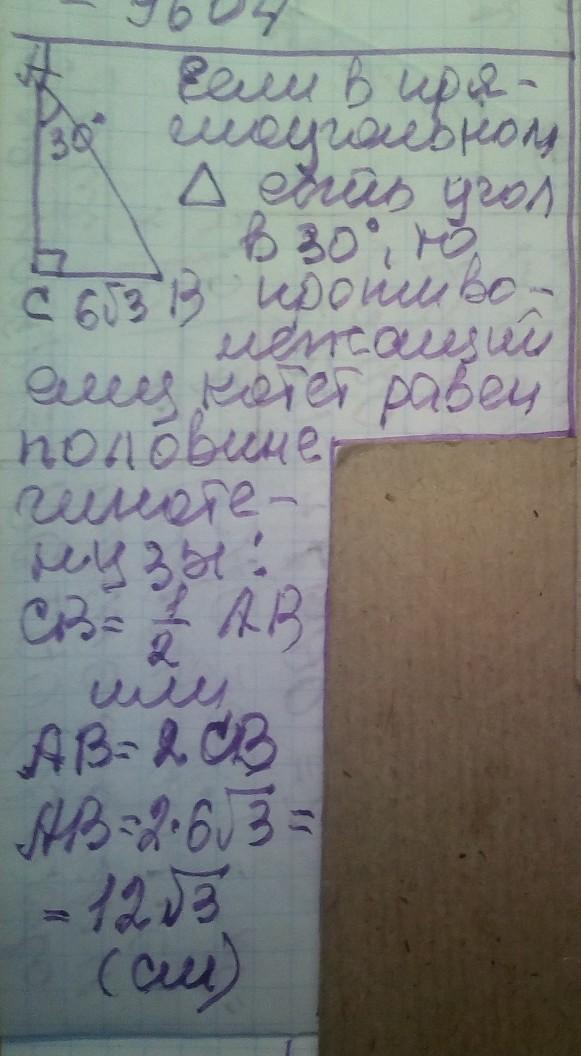 - 9604
A
30°
C 6√3 B
Если в пря-
моугольном
△ есть угол
в 30°, то
противо-
лежащий
ему катет равен
половине
гипоте-
нузы:
CB = 1/2 AB
или
AB = 2 CB
AB = 2·6√3 =
= 12√3
(см)